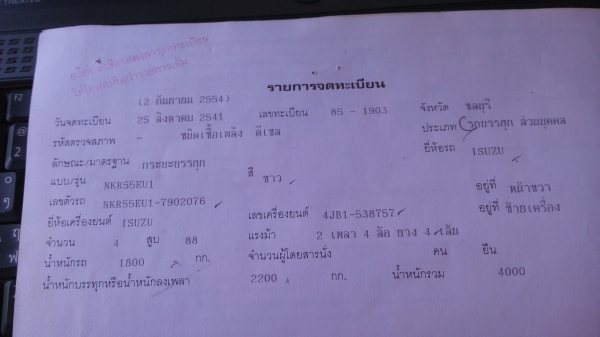 รายการจดทะเบียน
(2 กันยายน 2554)
วันจดทะเบียน 25 สิงหาคม 2541 เลขทะเบียน 85 - 1903 จังหวัด ชลบุรี
รหัสตรวจสภาพ - ชนิดเชื้อเพลิง ดีเซล ประเภท รถบรรทุก ส่วนบุคคล
ลักษณะ/มาตรฐาน กระบะบรรทุก ยี่ห้อรถ ISUZU
แบบ/รุ่น NKR55EU1 สี ขาว
เลขตัวรถ NKR55EU1-7902076 อยู่ที่ หน้าขวา
ยี่ห้อเครื่องยนต์ ISUZU เลขเครื่องยนต์ 4JB1-538757 อยู่ที่ ซ้ายเครื่อง
จำนวน 4 สูบ 88 แรงม้า 2 เพลา 4 ล้อ ยาง 4 เส้น
น้ำหนักรถ 1800 กก. จำนวนผู้โดยสารนั่ง คน ยืน
น้ำหนักบรรทุกหรือน้ำหนักลงเพลา 2200 กก. น้ำหนักรวม 4000